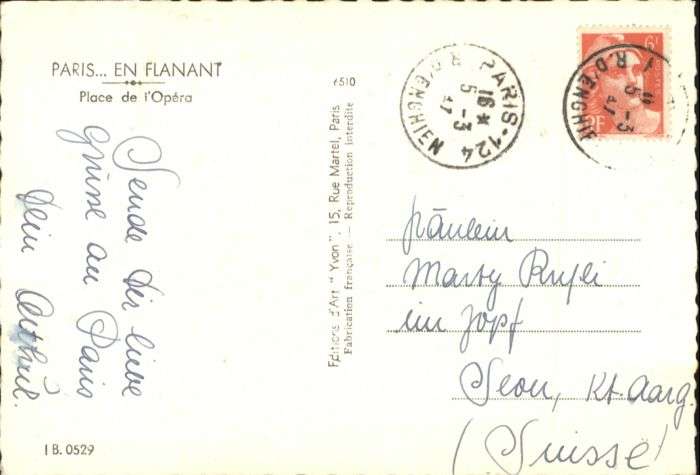 PARIS... EN FLANANT
Place de l'Opéra
6510
PARIS•124
R. D'ENGHIEN
16*
5 -3
47
6F
RF
R. D'ENGHIEN
5 -3
47
Sende dir liebe
Grüsse au Paris
Dein Arthur.
Editions d'Art "Yvon", 15, Rue Martel, Paris
Fabrication française — Reproduction interdite
Fräulein
Marty
im Zopf
Seon, Kt. Aarg.
(Suisse)
I B. 0529